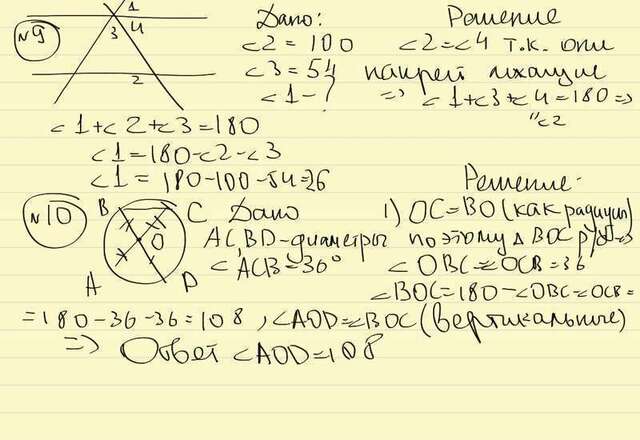 №9
1
3 4
2
Дано:
<2 = 100
<3 = 54
<1 - ?
Решение
<2 = <4 т.к. они
накрей лижащие
=> <1 + <3 + <4 = 180 =>
"<2
<1 + <2 + <3 = 180
<1 = 180 - <2 - <3
<1 = 180 - 100 - 54 = 26
№10
B C
O
A D
Дано
AC, BD - диаметры
< ACB = 36°
Решение.
1) OC = BO (как радиуи)
поэтому Δ BOC р/б =>
< OBC = <OCB = 36
< BOC = 180 - <OBC - <OCB =
= 180 - 36 - 36 = 108, <AOD = <BOC (вертикальные)
=> Ответ <AOD = 108